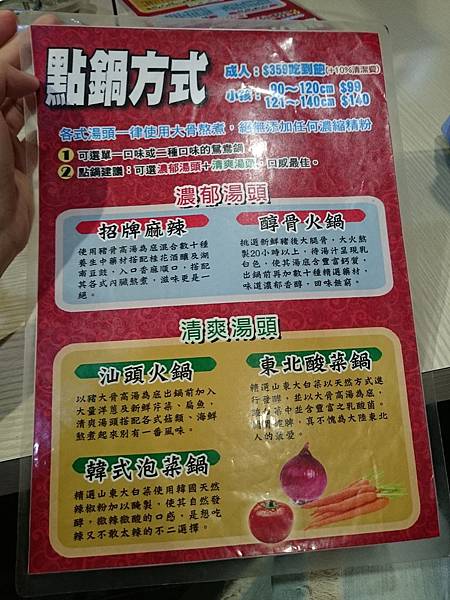 點鍋方式
成人：$359吃到飽(+10%清潔費)
小孩：90～120cm $99
121～140cm $140
各式湯頭一律使用大骨熬煮，絕無添加任何濃縮精粉
1 可選單一口味或二種口味的鴛鴦鍋
2 點鍋建議：可選濃郁湯頭+清爽湯頭，口感最佳。
濃郁湯頭
招牌麻辣
使用豬骨高湯為底混合數十種
養生中藥材搭配桂花酒釀及湖
南豆豉，入口香麻順口，搭配
其各式內臟熬煮，滋味更是一
絕。
醇骨火鍋
挑選新鮮豬後大腿骨，大火熬
製20小時以上，待湯汁呈現乳
白色，使其湯底含豐富鈣質，
出鍋前再加數十種精選藥材，
味道濃郁香醇，回味無窮。
清爽湯頭
汕頭火鍋
以豬大骨高湯為底出鍋前加入
大量洋蔥及新鮮芹菜、扁魚，
清爽湯頭搭配各式菇類、海鮮
熬煮起來別有一番風味。
東北酸菜鍋
精選山東大白菜以天然方式進
行發酵，並以大骨高湯為底，
菜中並含豐富之乳酸菌，
脾，真不愧為大陸東北
人的最愛。
韓式泡菜鍋
精選山東大白菜使用韓國天然
辣椒粉加以醃製，使其自然發
酵，微辣微酸的口感，是想吃
辣又不敢太辣的不二選擇。